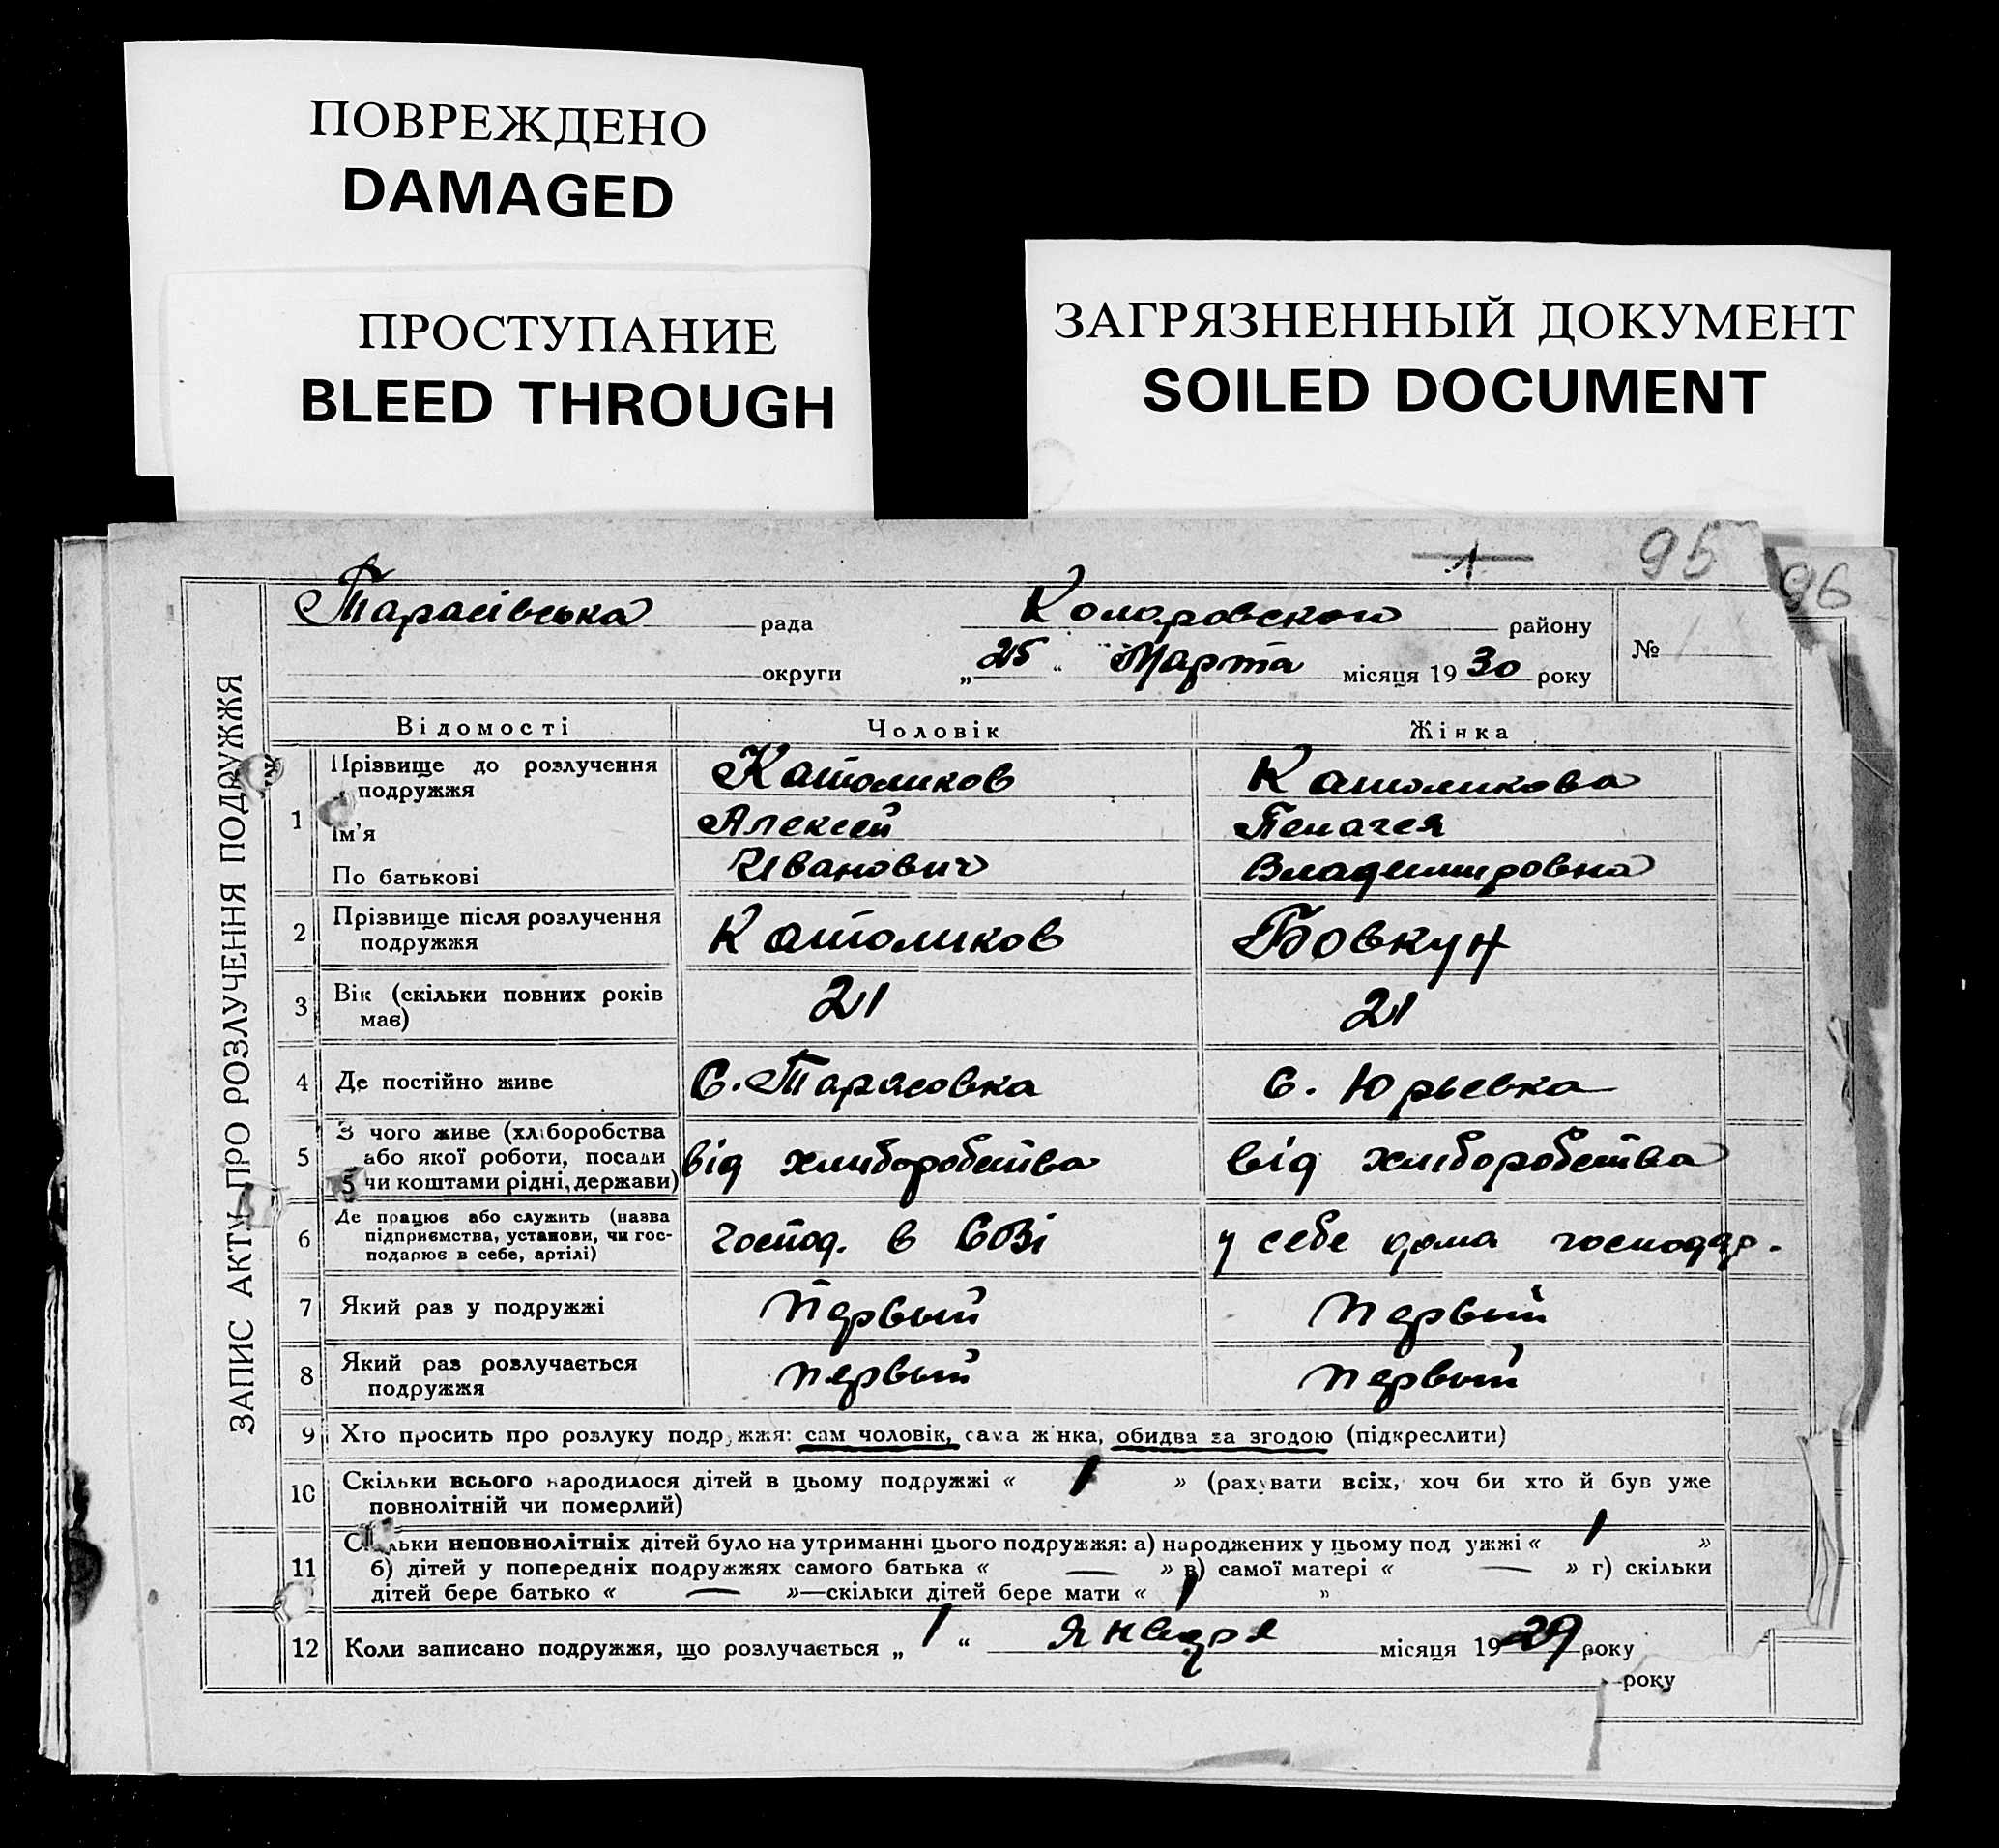 ПОВРЕЖДЕНО
DAMAGED
ПРОСТУПАНИЕ
BLEED THROUGH
ЗАГРЯЗНЕННЫЙ ДОКУМЕНТ
SOILED DOCUMENT
1 95
96
ЗАПИС АКТУ ПРО РОЗЛУЧЕННЯ ПОДРУЖЖЯ
Тарасівська рада Коларовского району
№
округи „ 25 “ Марта місяця 19 30 року
Відомості Чоловік Жінка
1 Прізвище до розлучення подружжя Католиков Католикова
Ім’я Алексей Пелагея
По батькові Иванович Владимировна
2 Прізвище після розлучення подружжя Католиков Бовкун
3 Вік (скільки повних років має) 21 21
4 Де постійно живе С. Тарасовка с. Юрьевка
5 З чого живе (хліборобства або якої роботи, посади чи коштами рідні, держави) від хліборобства від хліборобства
6 Де працює або служить (назва підприємства, установи, чи господарює в себе, артілі) господ. в СОЗі у себе дома господар.
7 Який раз у подружжі Первый Первый
8 Який раз розлучається подружжя первый первый
9 Хто просить про розлуку подружжя: сам чоловік, сама жінка, обидва за згодою (підкреслити)
10 Скільки всього народилося дітей в цьому подружжі « 1 » (рахувати всіх, хоч би хто й був уже
повнолітній чи померлий)
11 Скільки неповнолітніх дітей було на утриманні цього подружжя: а) народжених у цьому подружжі « 1 »
б) дітей у попередніх подружжях самого батька « — » в) самої матері « — » г) скільки
дітей бере батько « — »—скільки дітей бере мати « 1 »
12 Коли записано подружжя, що розлучається „ 1 “ Января місяця 19 29 року
року